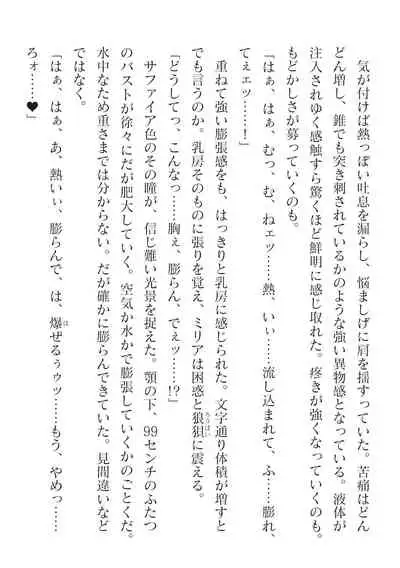 気が付けば熱っぽい吐息を漏らし、悩ましげに肩を揺すっていた。苦痛はどん
どん増し、錐でも突き刺されているかのような強い異物感となっている。液体が
注入されゆく感触すら驚くほど鮮明に感じ取れた。疼きが強くなっていくのも。
もどかしさが募っていくのも。
「はぁ、はぁ、むっ、む、ねェッ……熱、いぃ……流し込まれて、ふ……膨れ、
てぇェッ……！
重ねて強い膨張感をも、はっきりと乳房に感じられた。文字通り体積が増すと
でも言うのか。乳房そのものに張りを覚え、ミリアは困惑と狼狽に震える。
「どうしてっ、こんなっ……胸ぇ、膨らん、でぇッ……!?」
サファイア色のその瞳が、信じ難い光景を捉えた。顎の下、99センチのふたつ
のバストが徐々にだが肥大していく。空気か水かで膨張していくかのごとくだ。
水中なため重さまでは分からない。だが確かに膨らんできていた。見間違いなど
ではなく。
「はぁ、はぁ、あ、熱いぃ、膨らんで、は、爆ぜるぅゥッ……もう、やめっ……
ろォ……♥